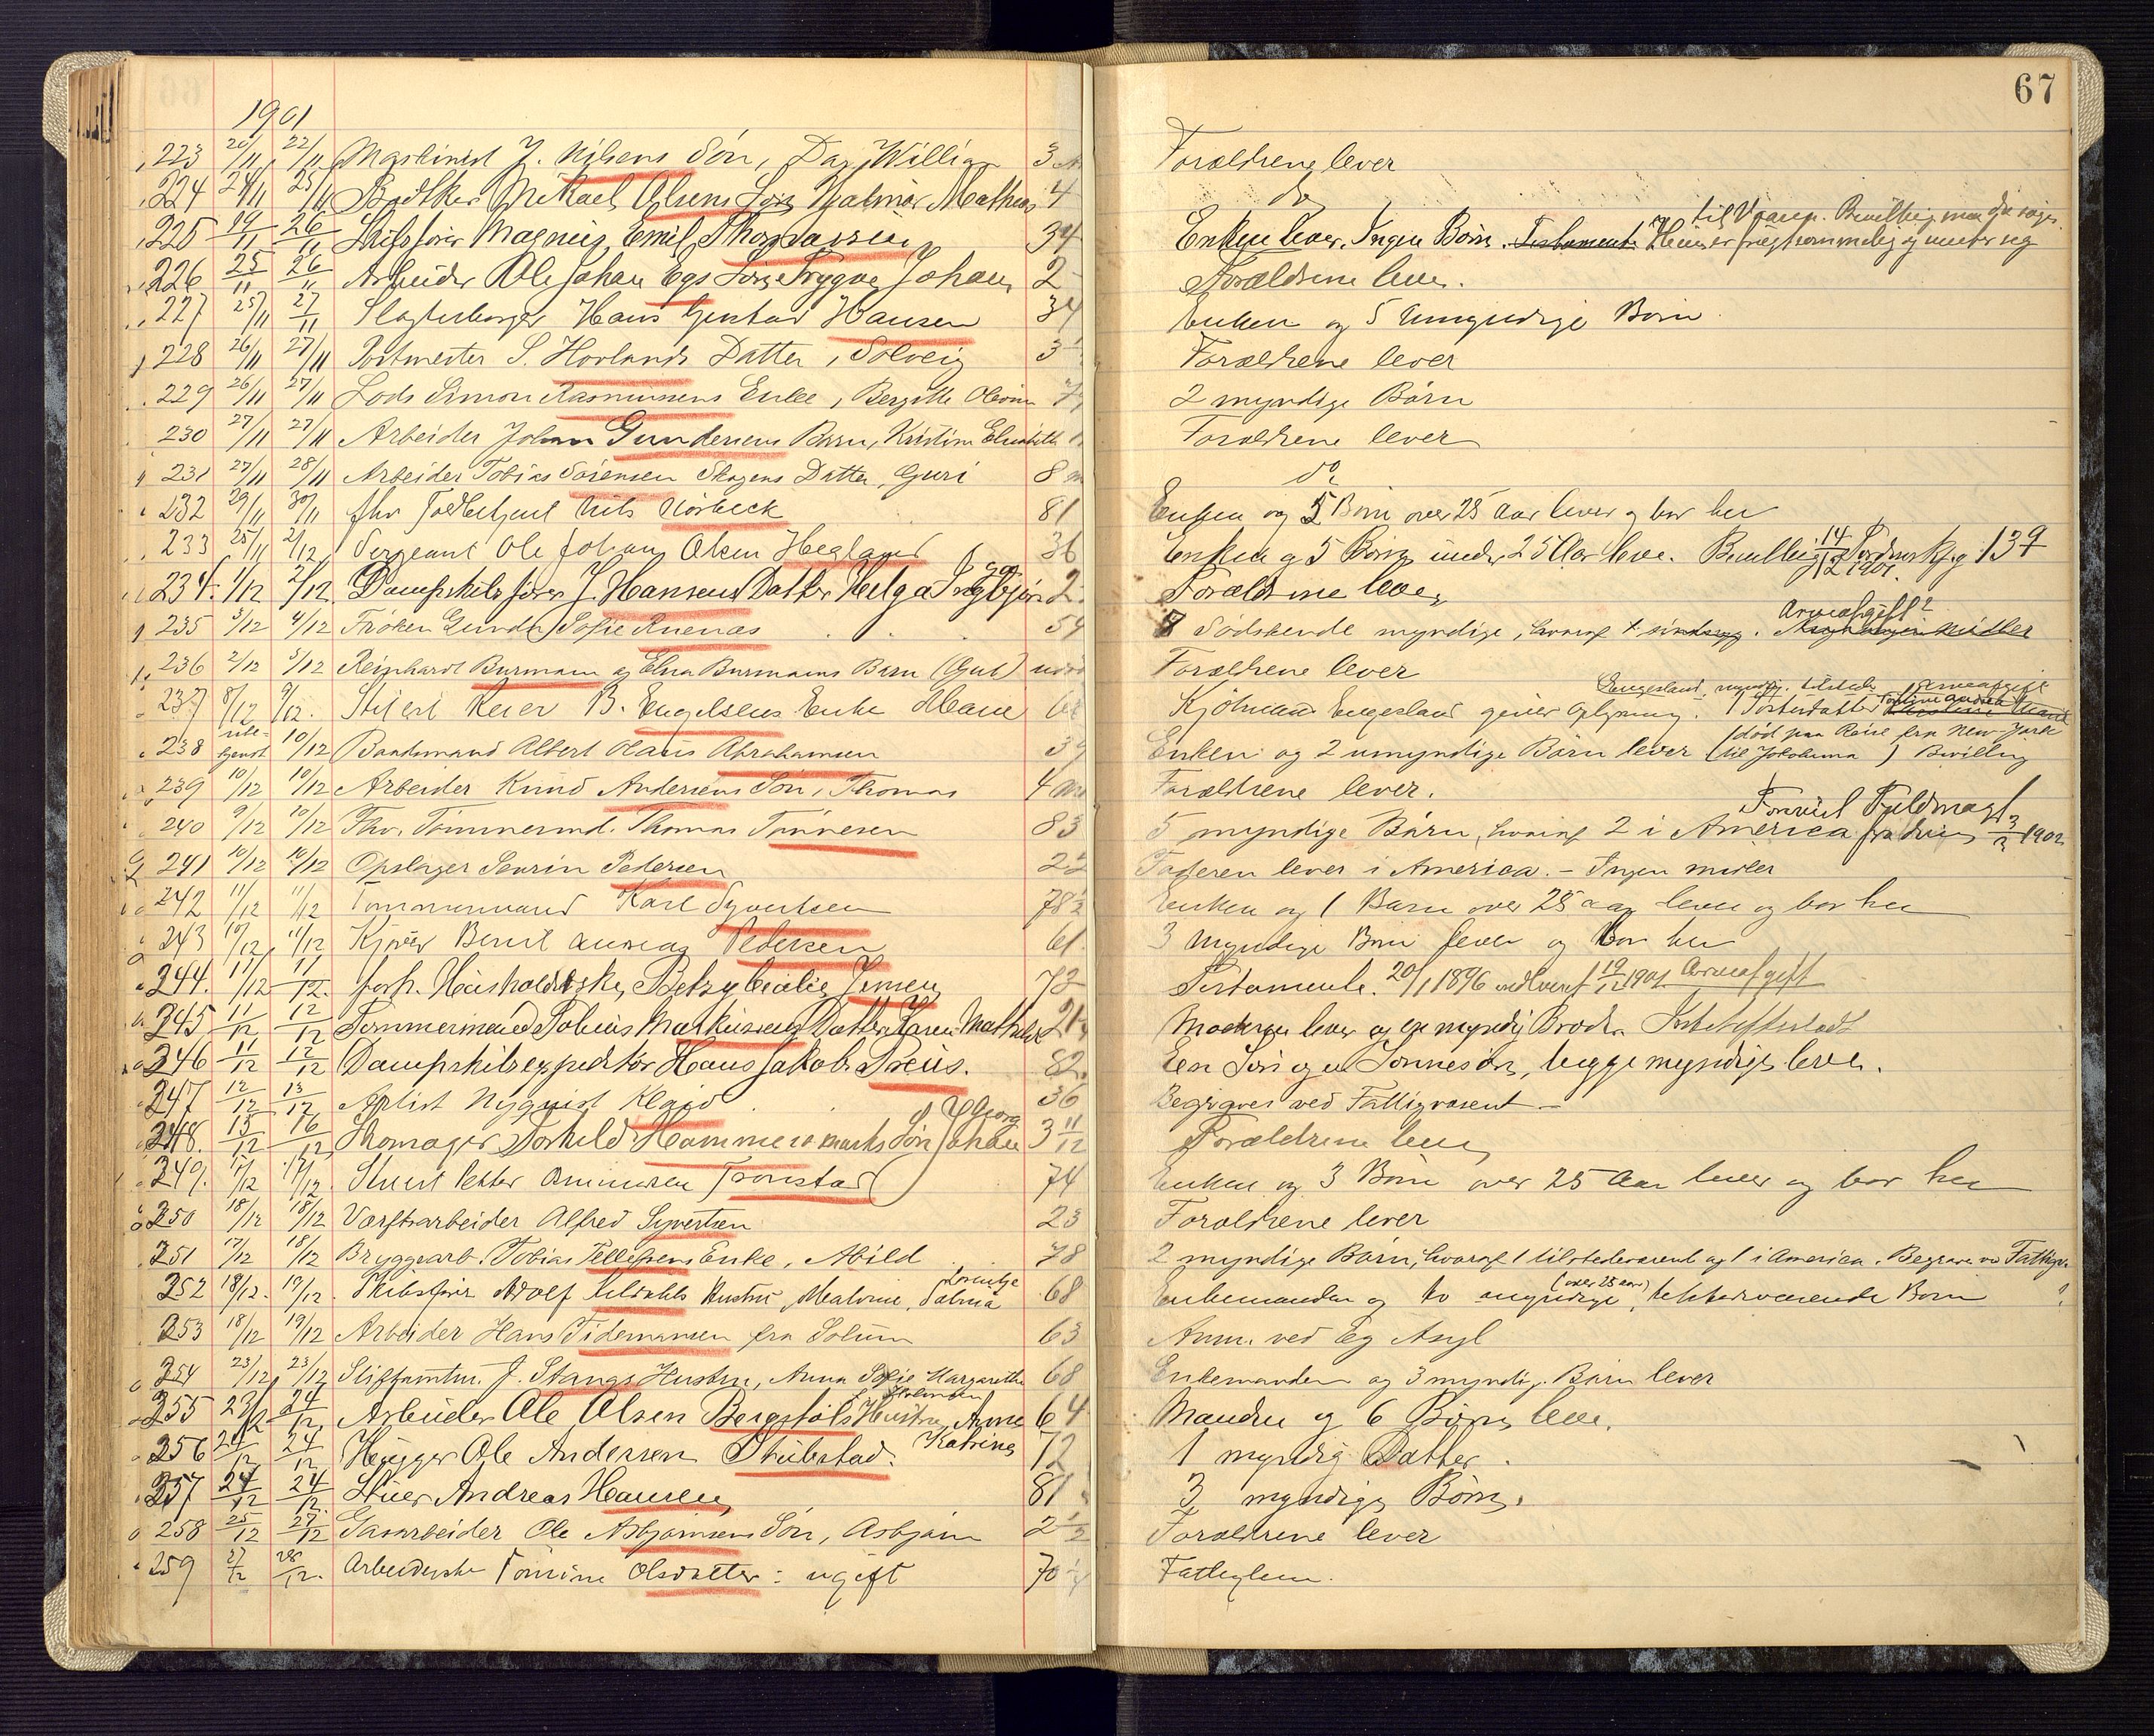 67
1901
223 20/11 22/11 Maskinist J. Nilsens Søn, Dag William 3 Forældrene lever
224 24/11 25/11 Bødker Mikael Olsens Søn Hjalmar Mathias 4 do
til Vrang. Bevilling maa
225 19/11 26/11 Skibsfører Magnus Emil Thomassen 34 Enken lever. Ingen Børn. Testamente
226 25/11 26/11 Arbeider Ole Johan Egs Søn Trygve Johan 2 Forældrene lever.
227 25/11 27/11 Slagterborger Hans Gustav Hansen 34 Enken og 5 umyndige Børn
228 26/11 27/11 Postmester S. Hovlands Datter, Solveig 3 Forældrene lever
229 26/11 27/11 Lods Simon Rasmussens Enke, Bergitte Olevine 2 myndige Børn
230 27/11 27/11 Arbeider Johan Gundersens Barn, Kristine Elisabeth Forældrene lever
231 27/11 28/11 Arbeider Tobias Sørensen Skogens Datter, Guri 8 do
232 29/11 30/11 fhv Toldbetjent Nils Nørbeck 81 Enken og 5 Børn over 25 Aar lever og bor her
233 25/11 2/12 Sergeant Ole Johan Olsen Hegland 36 Enken og 5 Børn under 25 Aar leve. Bevilling 14/12 1901. 139
234. 1/12 2/12 Dampskibsfører J. Hansens Datter Helga Ingebjør 2 Forældrene lever
Arveafgift?
235 3/12 4/12 Frøken Gunda Sofie Knenæs 54 8 Sødskende myndige, hvoraf 1 sindssyg. Midler
236 2/12 5/12 Reinhardt Burmann og Elna Burmanns Barn (Gut) Forældrene lever
Engesland, myndig, tilstede Arveafgift
237 8/12 9/12. B. Engelsens Enke Kjøbmand Engesland giver Oplysning. 1 Fosterdatter
(død paa Reise fra New-York
238 ube-kjendt 10/12 Baadsmand Albert Olaus Abrahamsen 39 Enken og 2 umyndige Børn lever til Jokohama) Bevilling
239 10/12 10/12 Arbeider Knud Andersens Søn, Thomas 4 Forældrene lever.
240 9/12 10/12 Fhv. Tømmermd. Thomas Tønnesen 83 5 myndige Børn, hvoraf 2 i America 3/2 1902
241 10/12 10/12 Opslager Severin Pedersen 22 Faderen lever i America. - Ingen midler
242 11/12 11/12 Tømmermand Karl Syvertsen 78½ Enken og 1 Barn over 25 aar lever og bor her
243 10/12 11/12 Kjører Bernt Andreas Pedersen 61 3 myndige Børn lever og bor her
244. 11/12 11/12. forh. Husholderske, Betzy Cecilie Jensen 73 Testamente 20/1 1896 vedlevert 19/12 1901 Arveafgift
245 11/12 12/12 Tømmermand Tobias Markussens Datter Karen Mathilde 21 Moderen lever og en myndig Broder.
246 11/12 12/12 Dampskibsexpeditør Hans Jakob Preus. 82. En Søn og en Sønnesøn, begge myndige lever.
247 12/12 13/12 Artist Nyquist 36 Begraves ved Fattigvæsent -
Georg
248. 15/12 16/12 Skomager Torkild Hammersmarks Søn Johan 3 11/12 Forældrene leve
249. 17/12 17/12. Stuert Petter Tronstad 74 Enken og 3 Børn over 25 Aar lever og bor her
250 18/12 18/12 Værftsarbeider Alfred Syvertsen 23 Forældrene lever
251 17/12 18/12 Bryggearb. Tobias Tellefsens Enke, Abild 78 2 myndige Børn, hvoraf 1 tilstedeværende og 1 i America. Begraves ved Fattigv.
252 18/12. 19/12. Skibsfører Adolf Hustru, Malvine, 68 Enkemanden og to myndige (over 25 aar), tilstedeværende Børn ?
253 18/12 19/12 Arbeider Hans Tidemansen fra Solum 63 Anm. ved Eg Asyl
254 23/12 23/12 Stiftamtm. J. Stangs Hustru, Anna Sofie Margarethe 68 Enkemanden og 3 myndige Børn lever
255 23/12 24/12 Arbeider Ole Olsen Bergstøls Hustru, Anne 64 Manden og 6 Børn leve.
Katrine
256 24/12 24/12 Hugger Ole Andersen Stubstad. 72 1 myndig Datter.
257 24/12 24/12 Stuer Andreas Hansen 81 3 myndige Børn.
258 25/12 27/12 Gasarbeider Ole Asbjørnsens Søn, Asbjørn 2½ Forældrene lever
259 27/12 28/12. Arbeiderske Tomine Olsdatter: ugift 70 Fattiglem.